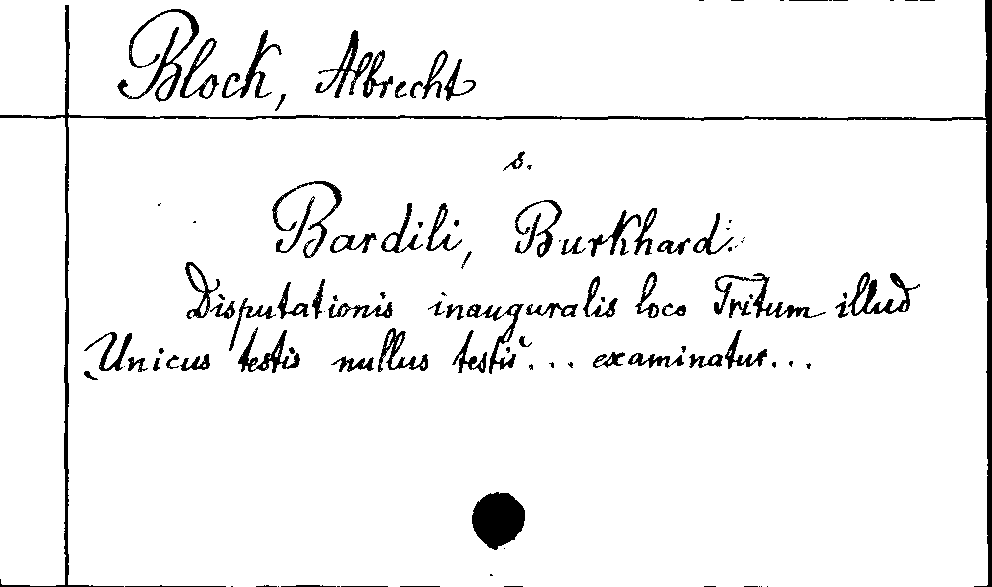 Block, Albrecht
s.
Bardili, Burkhard.
Disputationis inauguralis loco Tritum illud
Unicus testis nullus testis... examinatur...